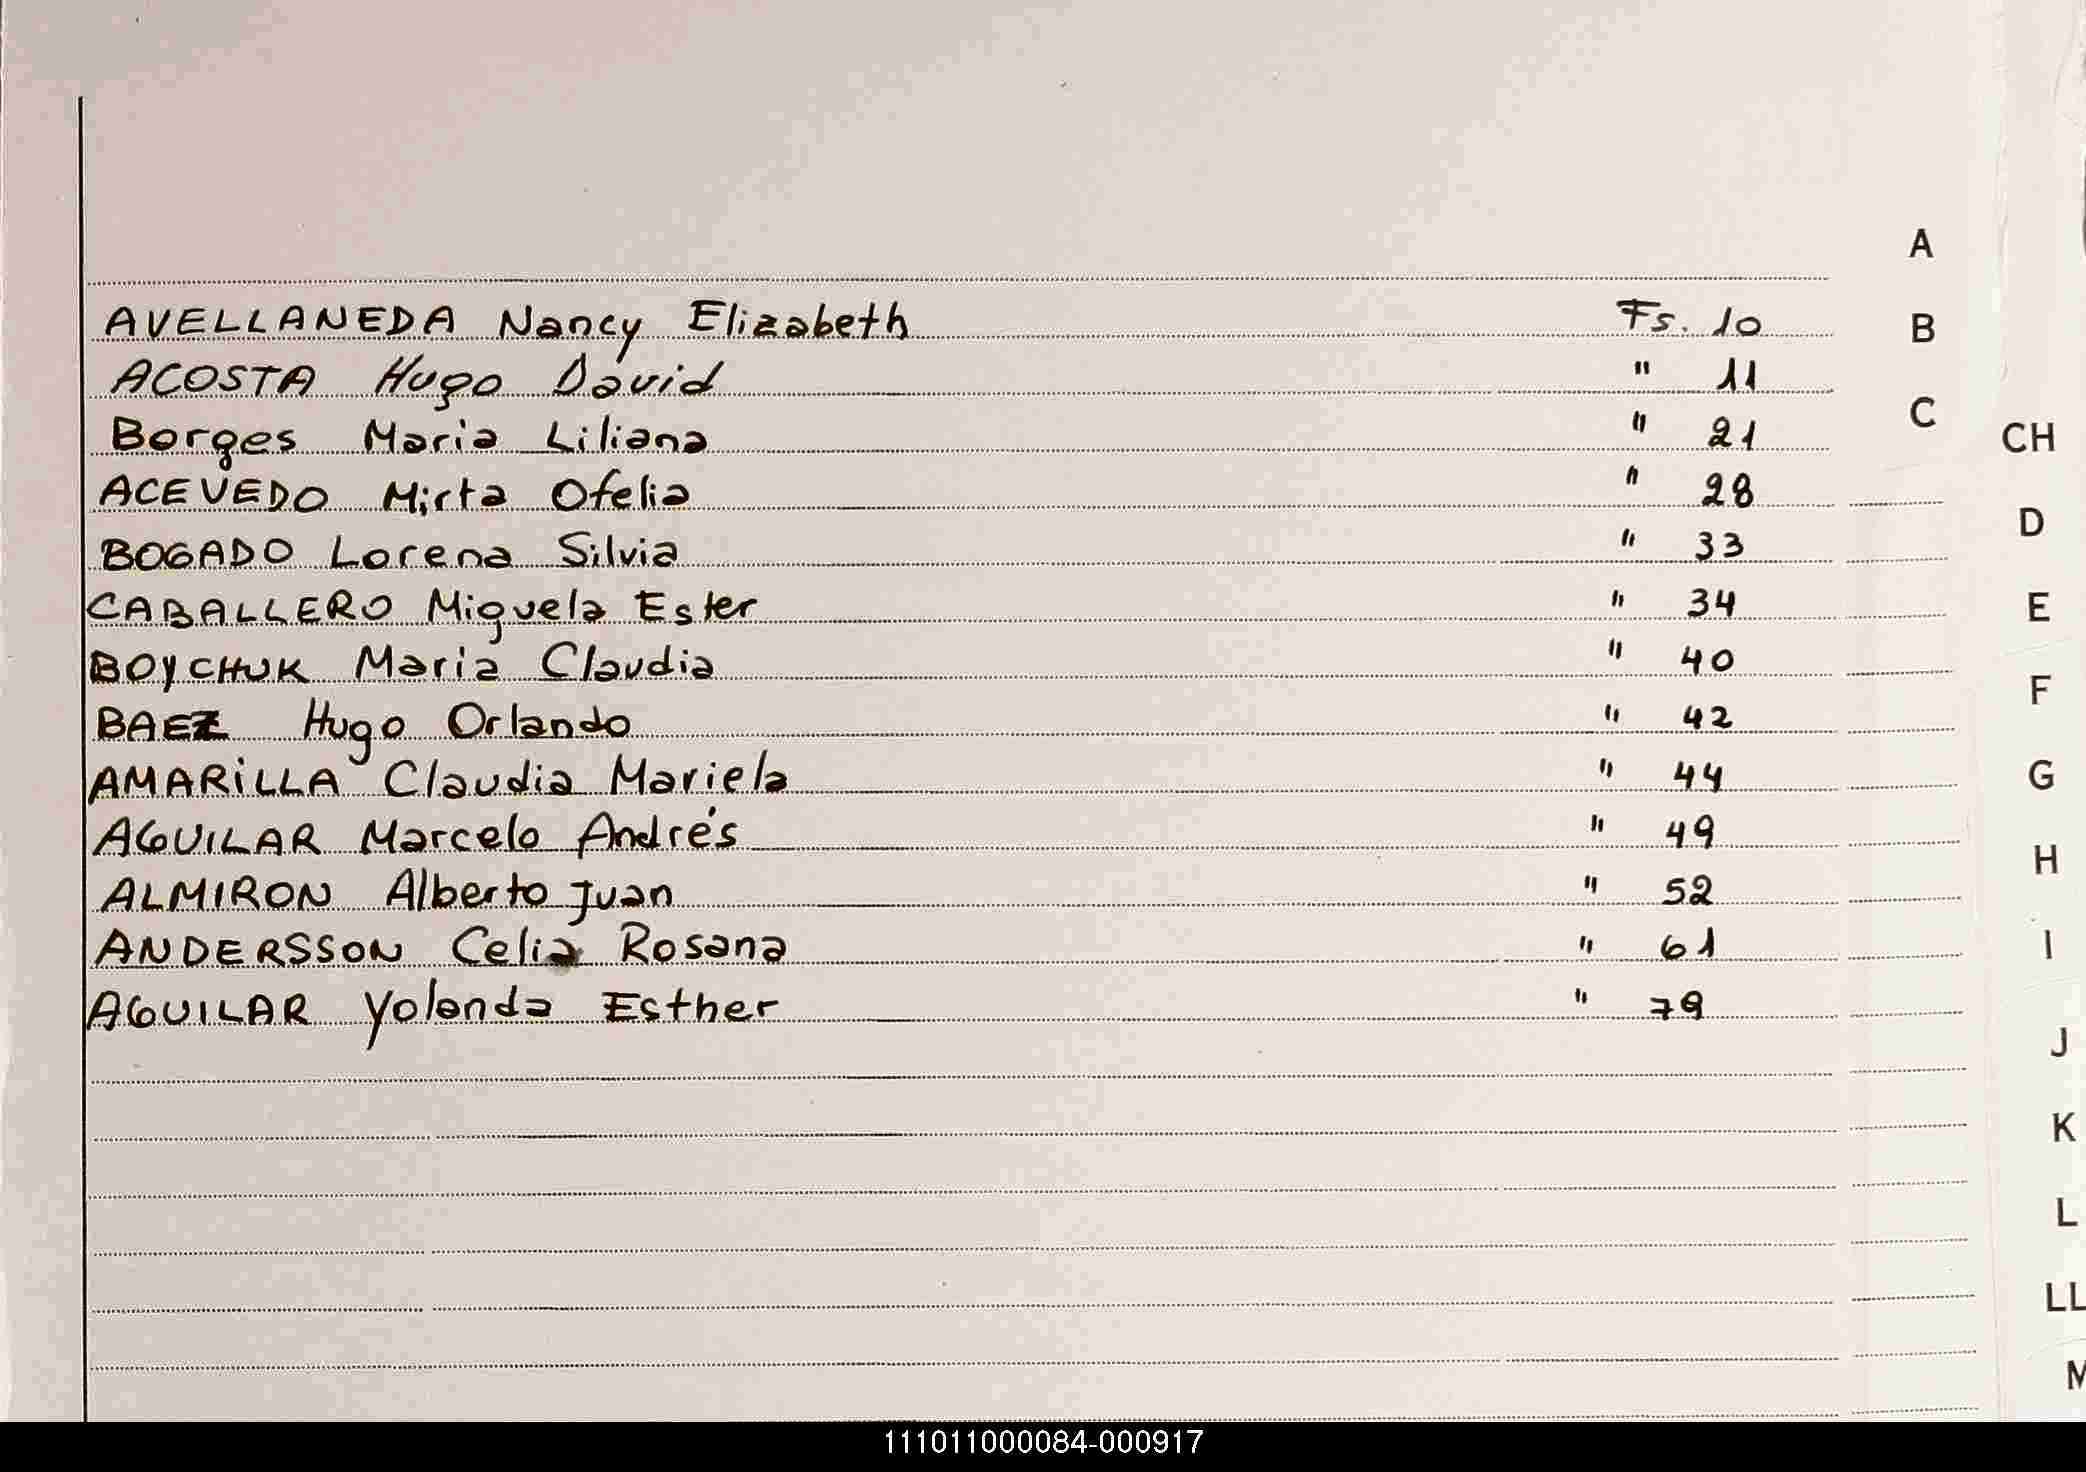 AVELLANEDA Nancy Elizabeth Fs. 10
ACOSTA Hugo David " 11
Borges Maria Liliana " 21
ACEVEDO Mirta Ofelia " 28
BOGADO Lorena Silvia " 33
CABALLERO Miguela Ester " 34
BOYCHUK Maria Claudia " 40
BAEZ Hugo Orlando " 42
AMARiLLA Claudia Mariela " 44
AGUILAR Marcelo Andrés " 49
ALMIRON Alberto Juan " 52
ANDERSSON Celia Rosana " 61
AGUILAR Yolanda Esther " 79
A
B
C
CH
D
E
F
G
H
I
J
K
L
LL
M
111011000084-000917